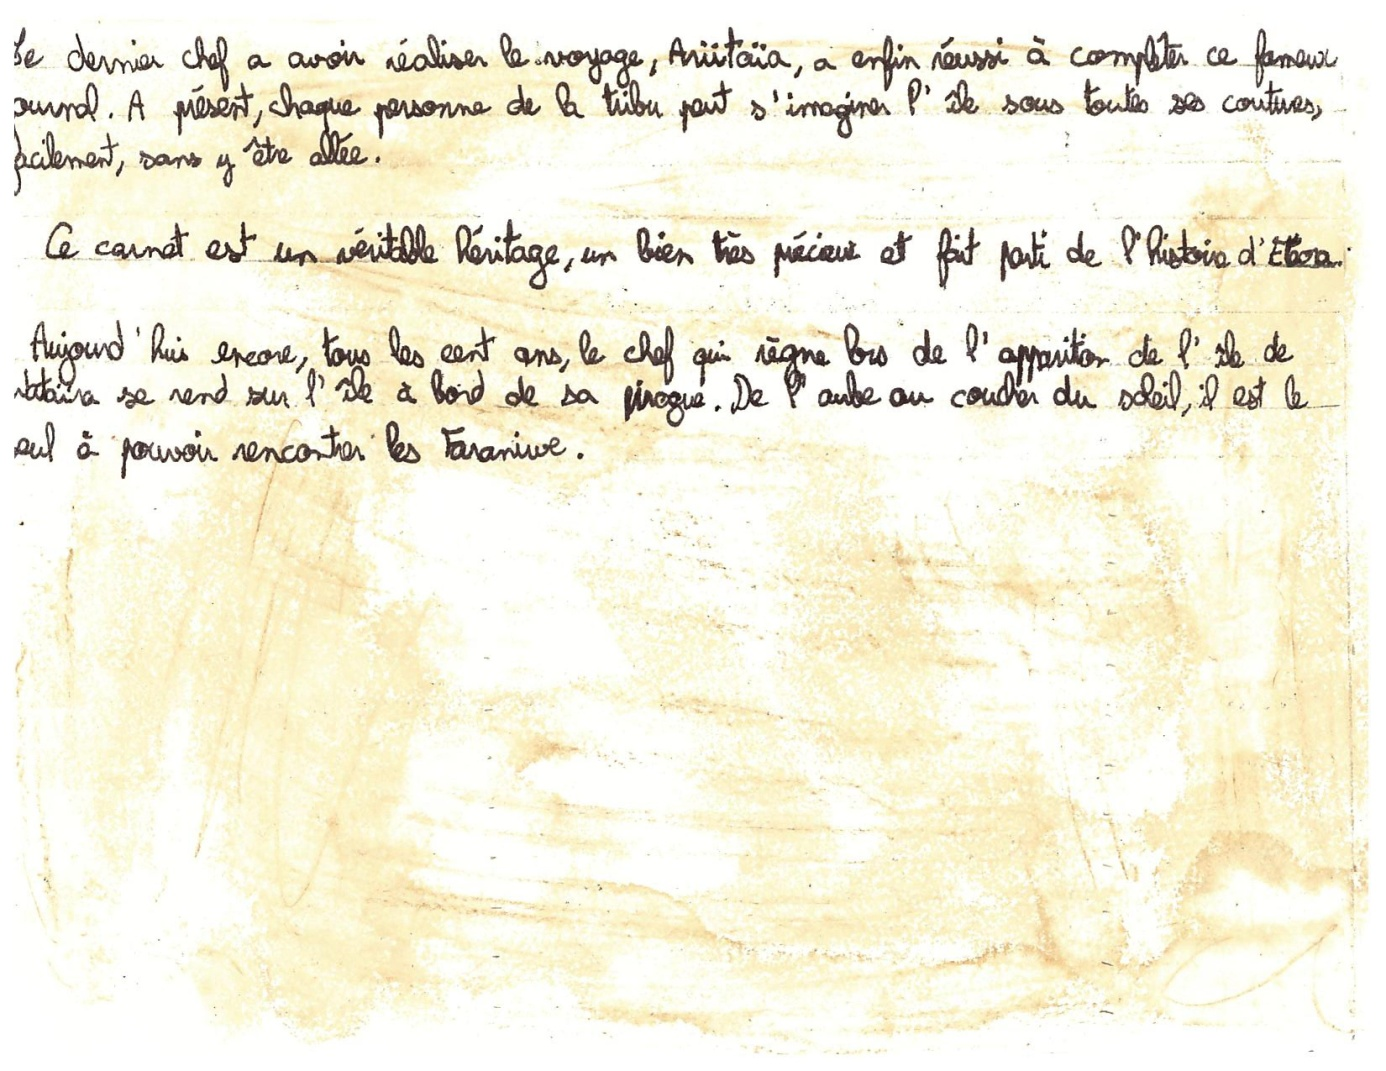 Le dernier chef a avoir réaliser le voyage, Ariitaïa, a enfin réussi à compléter ce fameux
ournal. A présent, chaque personne de la tribu peut s'imaginer l'île sous toutes ses coutures,
facilement, sans y être allée.
Ce carnet est un véritable héritage, un bien très précieux et fait parti de l'histoire d'
Aujourd'hui encore, tous les cent ans, le chef qui règne lors de l'apparition de l'île de
se rend sur l'île à bord de sa pirogue. De l'aube au coucher du soleil, il est le
eul à pouvoir rencontrer les Faraniwe.